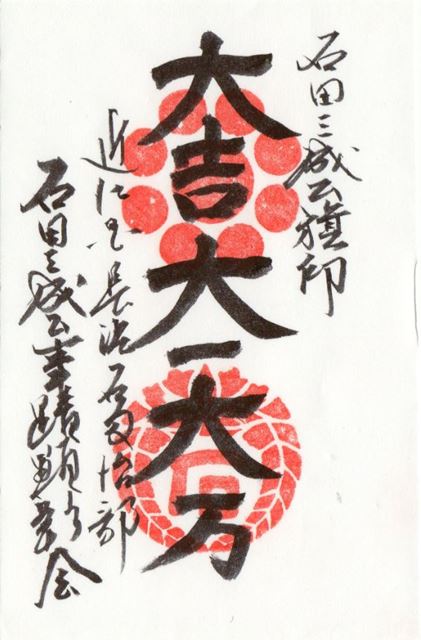 石田三成公旗印
大吉大一大万
近江国長浜石田治部
石田三成公事蹟顕彰会